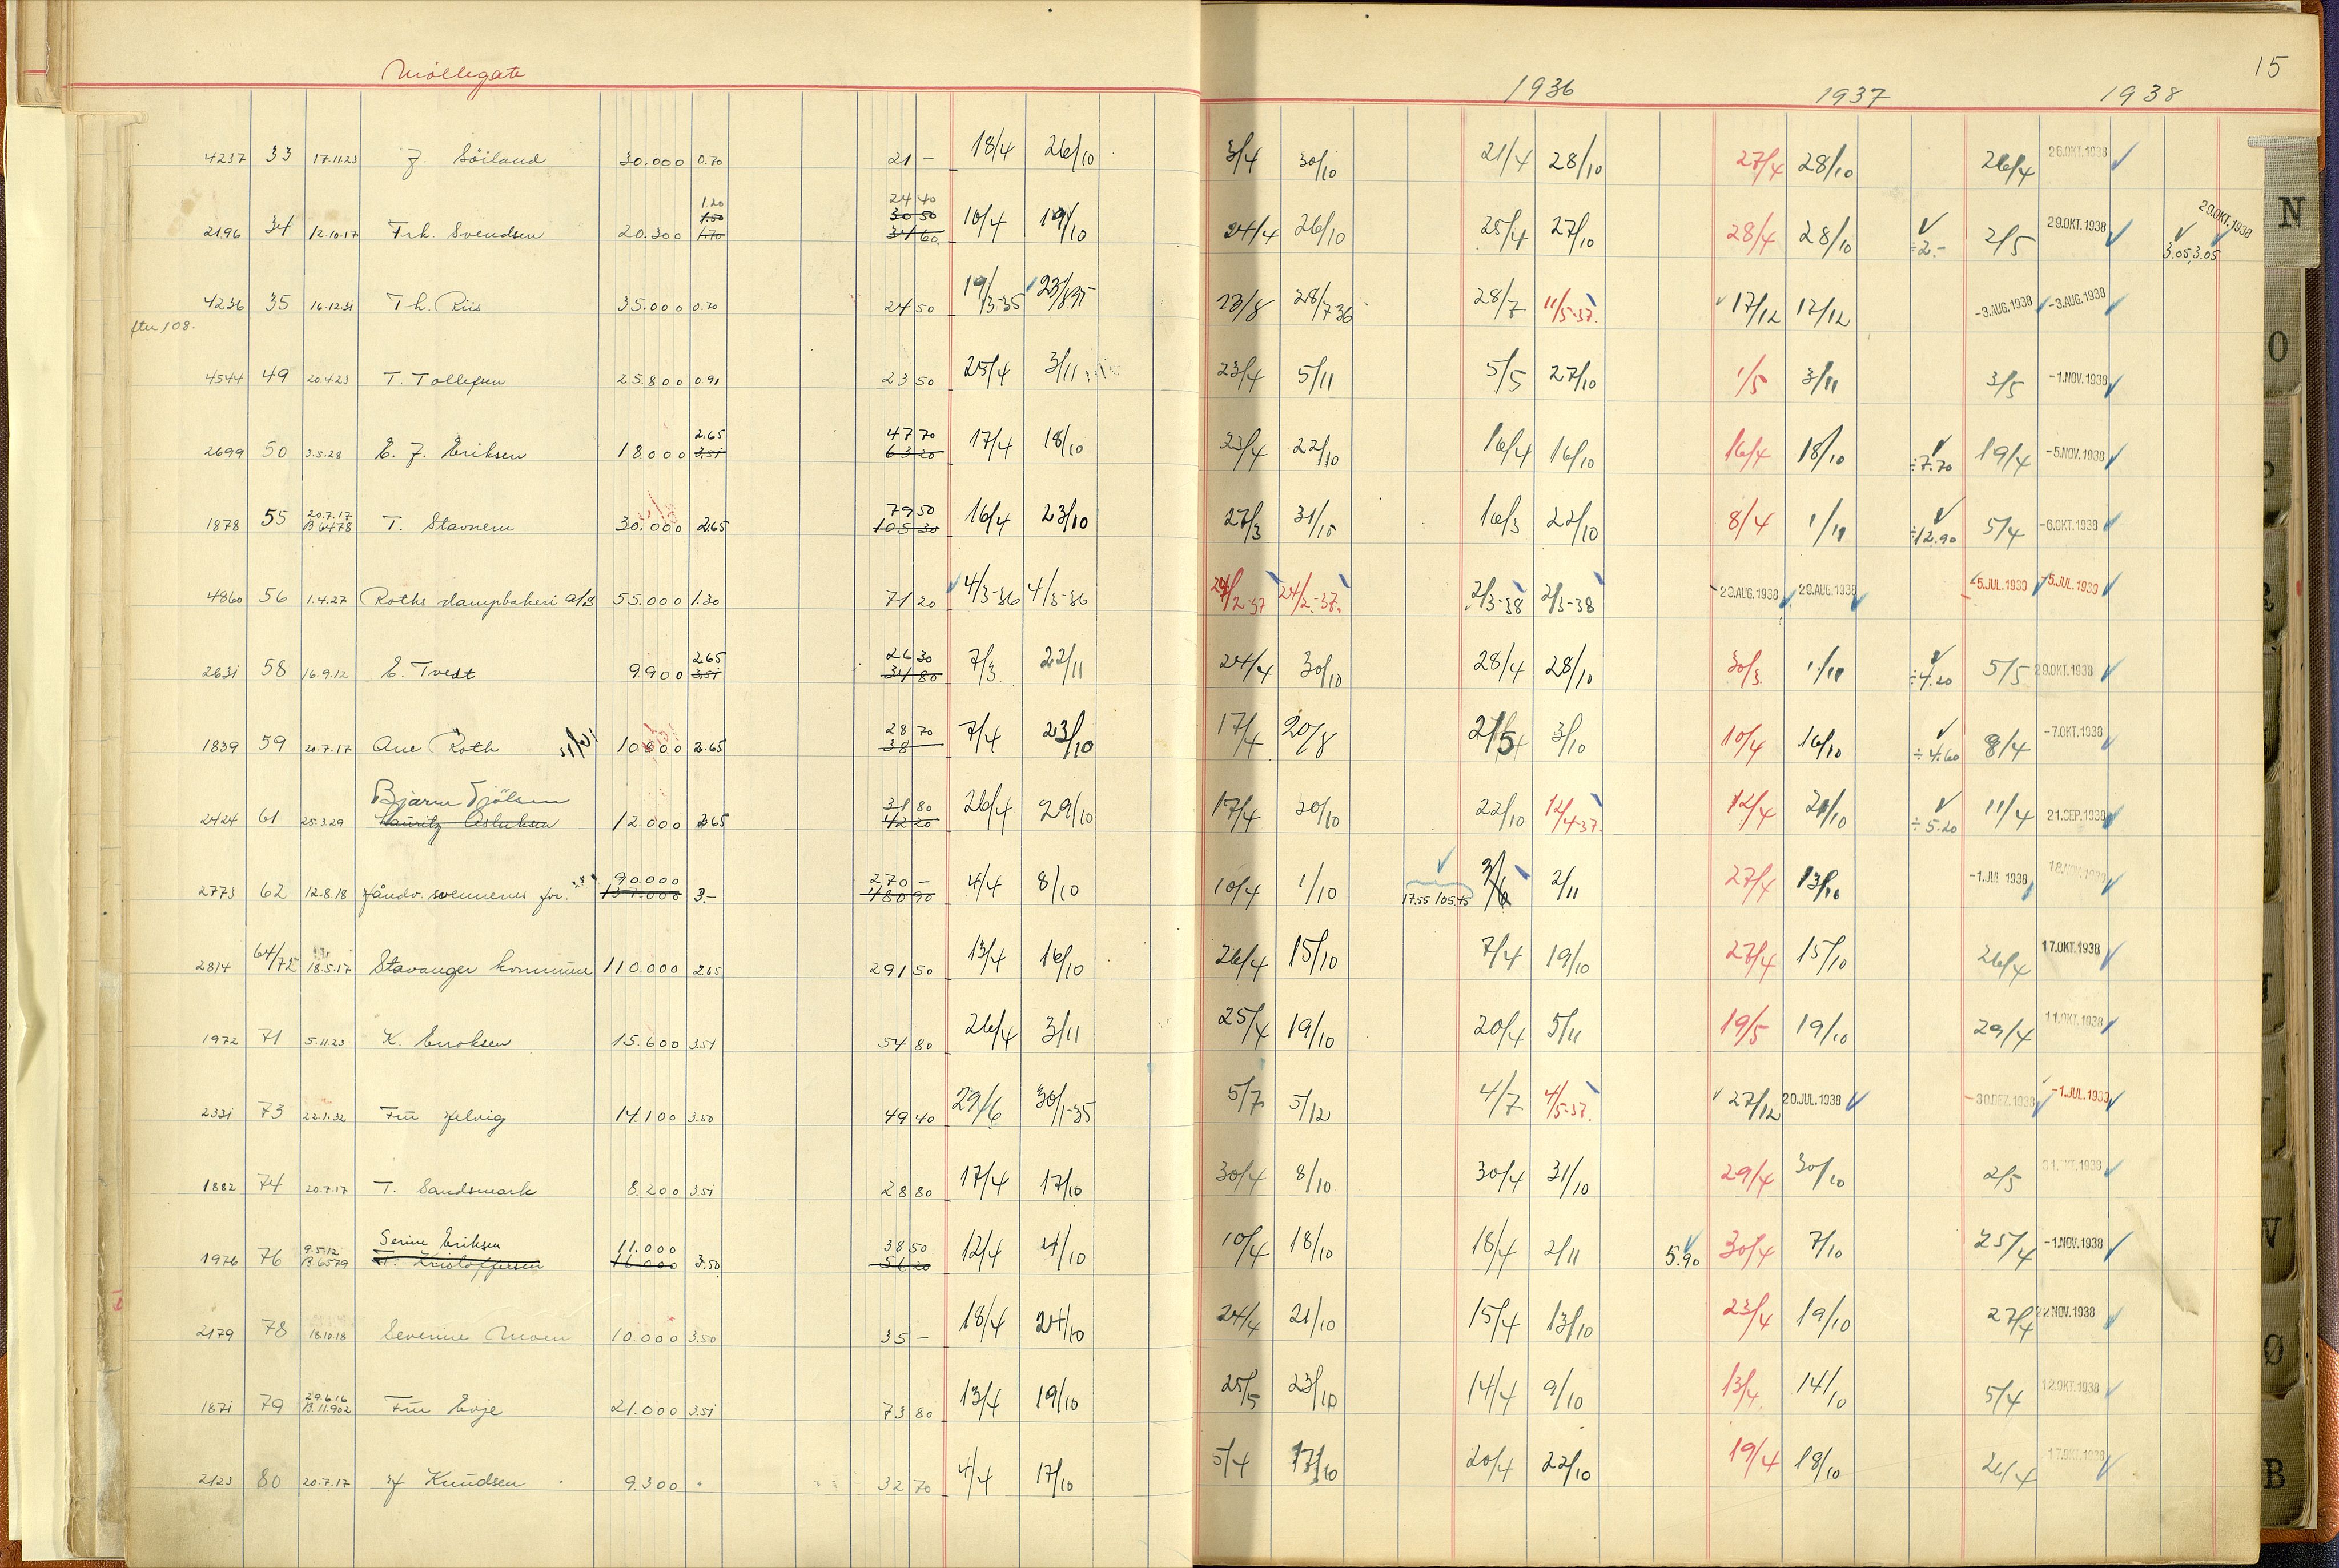 Møllegate
15
1936 1937 1938
4237 33 17.11.23 J. Söiland 30.000 0.70 21 – 18/4 26/10 3/4 30/10 21/4 28/10 27/4 28/10 26/4 26.OKT.1938
1.20 24 40 29.OKT.1938
1.50 30 50
2196 34 12.10.17 Frk. Svendsen 20.300 1.70 34 60 10/4 19/10 24/4 26/10 25/4 27/10 28/4 28/10 ÷2.- 2/5 29.OKT.1938 3.05 3.05
4236 35 16.12.31 Th. Riis 35.000 0.70 24 50 19/3-35 23/8 35 23/8 28/7 36 28/7 11/5-37. 17/12 17/12 -3.AUG.1938 -3.AUG.1938
4544 49 20.4.23 T. Tollefsen 25.800 0.91 23 50 25/4 3/11 23/4 5/11 5/5 27/10 1/5 3/11 3/5 -1.NOV.1938
2.65 47 70
2699 50 3.5.28 E. J. Eriksen 18000 3.51 63 20 17/4 18/10 23/4 22/10 16/4 16/10 16/4 18/10 ÷7.70 19/4 -5.NOV.1938
20.7.17 79 50
1878 55 B 6478 T. Stavnem 30.000 2.65 105 30 16/4 23/10 27/3 31/10 16/3 22/10 8/4 1/11 ÷12.90 5/4 -6.OKT.1938
4860 56 1.4.27 Roths dampbakeri a/s 55.000 1.30 71 20 4/3-36 4/3-36 24/2-37 24/2-37. 2/3-38 2/3-38 20.AUG.1938 20.AUG.1938 -5.JUL.1939 -5.JUL.1939
2.65 26 30
2631 58 16.9.12 E. Tvedt 9.900 3.51 34 80 7/3 22/11 24/4 30/10 28/4 28/10 30/3 1/11 ÷4.20 5/5 29.OKT.1938
28 70
1839 59 20.7.17 Ane Roth 10.800 2.65 38 7/4 23/10 17/4 20/8 3/10 10/4 16/10 ÷4.60 8/4 -7.OKT.1938
Bjarne Tjölsen 31 80
2424 61 25.3.29 Lauritz Aslaksen 12.000 2.65 42 20 26/4 29/10 17/4 30/10 22/10 12/4-37. 12/4 21/10 ÷5.20 11/4 21.SEP.1938
90.000 270 –
2773 62 12.8.18 Håndv. svennenes for. 137.000 3.– 480 90 4/4 8/10 10/4 1/10 17.55 105.45 2/11 27/4 13/10 -1.JUL 1938 18.NOV.1938
2814 64/72 18.5.17 Stavanger kommune 110.000 2.65 291 50 13/4 16/10 26/4 15/10 7/4 19/10 27/4 15/10 26/4 17.OKT.1938
1972 71 5.11.23 K. Enoksen 15.600 3.51 54 80 26/4 3/11 25/4 19/10 20/4 5/11 19/5 19/10 29/4 11.OKT.1938
2331 73 22.1.32 Frü Helvig 14.100 3.50 49 40 29/6 30/1-35 5/7 5/12 4/7 4/5-37. 27/12 20.JUL.1938 -30.DEZ.1938 -1.JUL.1939
1882 74 20.7.17 T. Sandsmark 8.200 3.51 28 80 17/4 17/10 30/4 8/10 30/4 31/10 29/4 30/10 2/5 31.OKT.1938
9.5.12 Serine Eriksen 11.000 38 50
1976 76 B 6579 T. Kristoffersen 16 000 3.50 56 20 12/4 4/10 10/4 18/10 18/4 2/11 5.90 30/4 7/10 25/4 -1.NOV.1938
2179 78 18.10.18 Severine Moen 10.000 3.50 35 – 18/4 24/10 24/4 21/10 15/4 13/10 23/4 19/10 27/4 22 NOV.1938
29.6.16
1871 79 B.11.902 Frü Evje 21.000 3.51 73 80 13/4 19/10 25/5 23/10 14/4 9/10 13/4 14/10 5/4 12.OKT.1938
2123 80 20.7.17 H Knudsen 9.300 " 32 70 4/4 17/10 5/4 17/10 20/4 22/10 19/4 18/10 26/4 17.OKT.1938
N
O
Ø
B